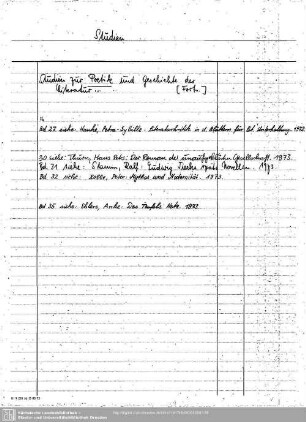 Studien
Studien zur Poetik und Geschichte der
Literatur . . . [Forts.]
Bd 27 siehe: Hauke, Petra-Sybille: Literaturkritik in d. Blättern für lit. Unterhaltung. 1972.
30 siehe: Thürn, Hans Peter: Der Roman der unaufgeklärten Gesellschaft. 1973.
Bd 31 siehe: Stamm, Ralf: Ludwig Tiecks späte Novellen. 1973.
Bd 32 siehe: Kobbe, Peter: Mythos und Modernität. 1973.
Bd 35 siehe: Ehlers, Anke: Des Teufels Netz. 1973.
Sächsische Landesbibliothek -
Staats- und Universitätsbibliothek Dresden